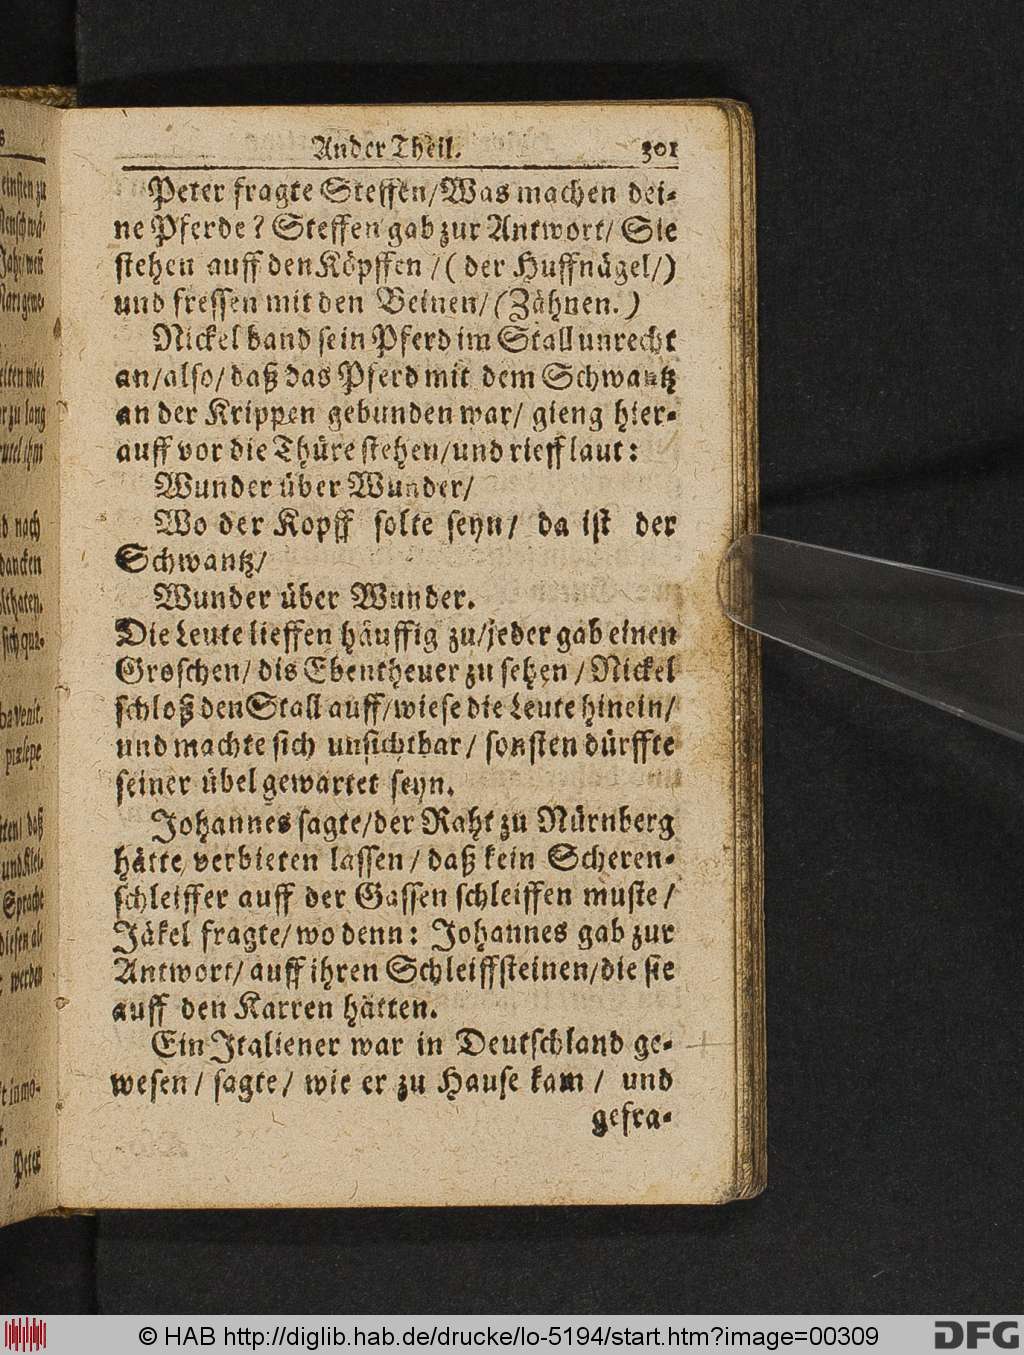 Ander Theil. 301
Peter fragte Steffen/Was machen dei-
ne Pferde? Steffen gab zur Antwort/ Sie
stehen auff den Köpffen /( der Huffnägel/)
und fressen mit den Beinen/ (Zähnen.)
Nickel band sein Pferd im Stall unrecht
an/also/daß das Pferd mit dem Schwantz
an der Krippen gebunden war/ gieng hier-
auff vor die Thüre stehen/und rieff laut:
Wunder über Wunder/
Wo der Kopff solte seyn/ da ist der
Schwantz/
Wunder über Wunder.
Die Leute lieffen häuffig zu/jeder gab einen
Groschen/ dis Ebentheuer zu sehen / Nickel
schloß den Stall auff/wiese die Leute hinein/
und machte sich unsichtbar/ sonsten dürffte
seiner übel gewartet seyn.
Johannes sagte/der Raht zu Nürnberg
hätte verbieten lassen / daß kein Scheren-
schleiffer auff der Gassen schleiffen muste/
Jäkel fragte/wo denn: Johannes gab zur
Antwort/ auff ihren Schleiffsteinen/die sie
auff den Karren hätten.
Ein Italiener war in Deutschland ge-
wesen/ sagte/ wie er zu Hause kam / und
gefra-
einsten zu
Jahr weit
er zu lang
d nach
dancken
lthaten.
sich que-
ba venit.
præsepe
daß
Sprache
diesen als
werden
Peter
© HAB http://diglib.hab.de/drucke/lo-5194/start.htm?image=00309
DFG